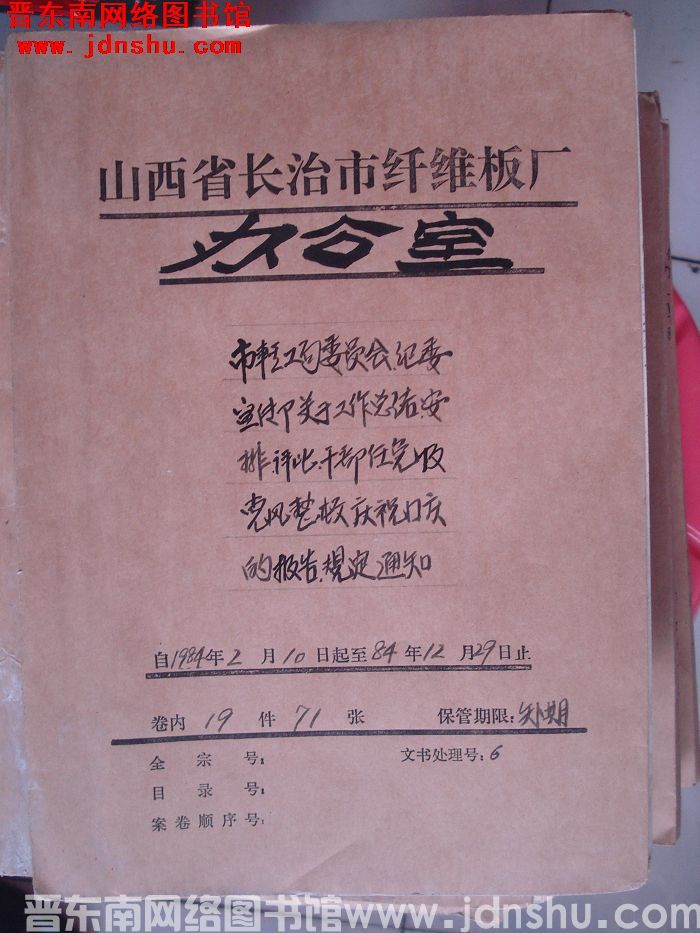 晋东南网络图书馆
www.jdnshu.com
山西省长治市纤维板厂
办公室
市轻工局委员会、纪委
宣传部关于工作总结、安
排、评比、干部任免、以及
党风整校庆祝
的报告、规定通知
自1984年2月10日起至84年12月29日止
卷内19件71张 保管期限:短期
全宗号: 文书处理号:6
目录号:
案卷顺序号:
晋东南网络图书馆www.jdnshu.com